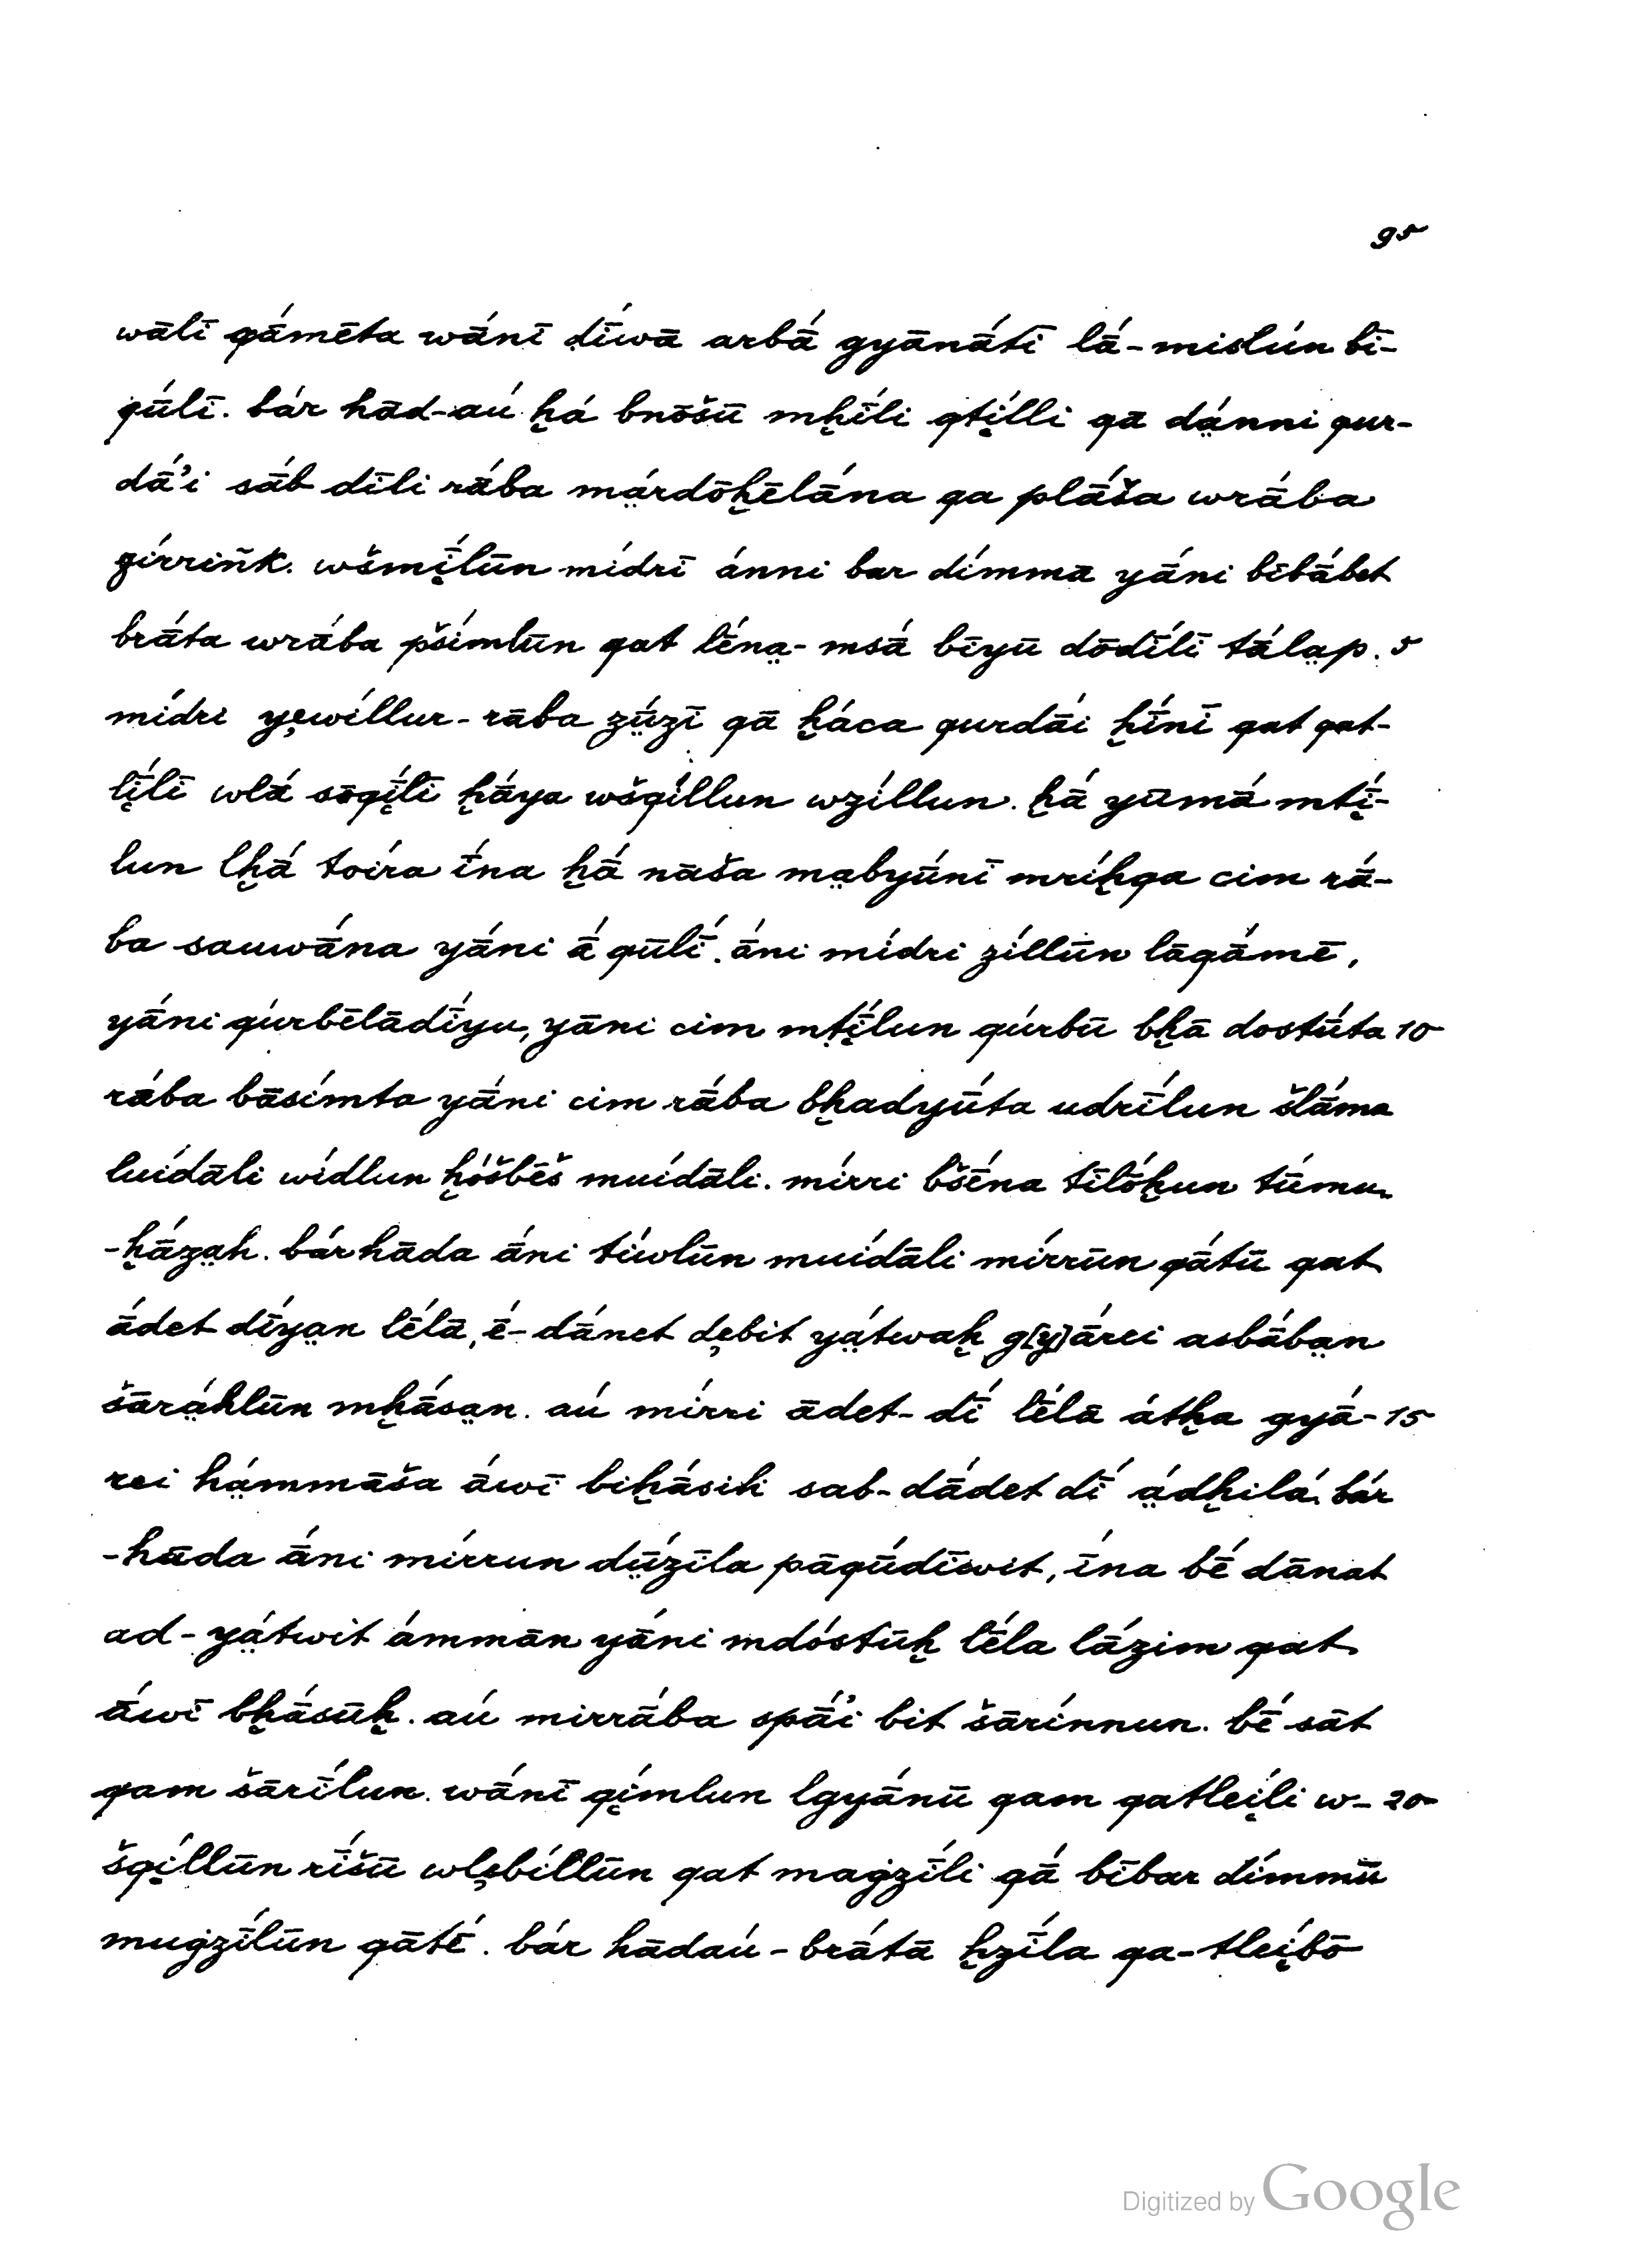 95
wālī qā́mēta wā́nī dī́wā arbā́ gyānā́tī lā́-mislún bī-
gūlī. bár hād-aú ḫá bnōšū mḫī́li qtị́lli qā dạ́nni qur-
dā́'i sā́b dīli rā́ba mạ́rdōḫēlā́na qa plā́ša wrā́ba
zírriñk. wšmị̄́lūn mídrī ánni bar dímmā yā́ni bībā́bet
brā́ta wrā́ba pšímlūn qat lḗnạ-msā́ bīyū dōdī́lī tā́lạp. 5
mídri yẹwíllur-rāba zṻzī qā ḫáca qurdā́i ḫī́nī qat qat-
lị̄́lī wlā́ sōqị̄́lī ḫā́ya wšqíllun wzíllun. ḫā́ yūmā́ mtị̄́-
lun lḫā́ toíra ī́na ḫā́ nāša mạbyū́nī mríḫqa cim rā́-
ba sauwā́na yā́ni ā́ gūlī́. ā́ni mídri zíllūn lāqā́mē,
yā́ni qúrbēlādī́yu, yāni cim mtị̄́lun qúrbū bḫā dostū́ta 10
rā́ba bāsímta yā́ni cim rā́ba bḫadyū́ta udrī́lun šlā́ma
luídāli wídlun ḫóšbēš muídāli. mírri bšḗna tīlṓḫun tūmu-
-ḫā́zạh. bár hāda ā́ni tíwlūn muídāli mírrūn qā́tū qat
ā́det dī́yạn lḗlā, ḗ-dā́net dẹbit yạ́twaḫ g[y]ā́rei asbā́bạn
šārạ́hlūn mḫā́sạn. aú mírri ādet-dī́ lḗlā átḫa gyā́- 15
rei hạ́mmāša ā́wī biḫā́sih sab-dā́det dī́ ạ́dḫilá. bár
-hāda ā́ni mírrun dṻzīla pāqū́dīwit, ī́na bḗ dānat
ad-yạ́twit ámmān yā́ni mdóstūḫ lḗla lā́zim qat
ā́wī bḫā́sūḫ. aú mirrā́ba spā́'i bit šārínnun. bḗ sāt
qam šārī́lun. wā́nī qị́mlun lgyā́nū qam qatleị́li w- 20
šqị́llūn rī́šū wlẹbíllūn qat maġzī́li qā́ bībar dímmū
muġzī́lūn qātḗ. bár hādaú-brā́tā ḫzī́la qa-tleị́bō
Digitized by Google